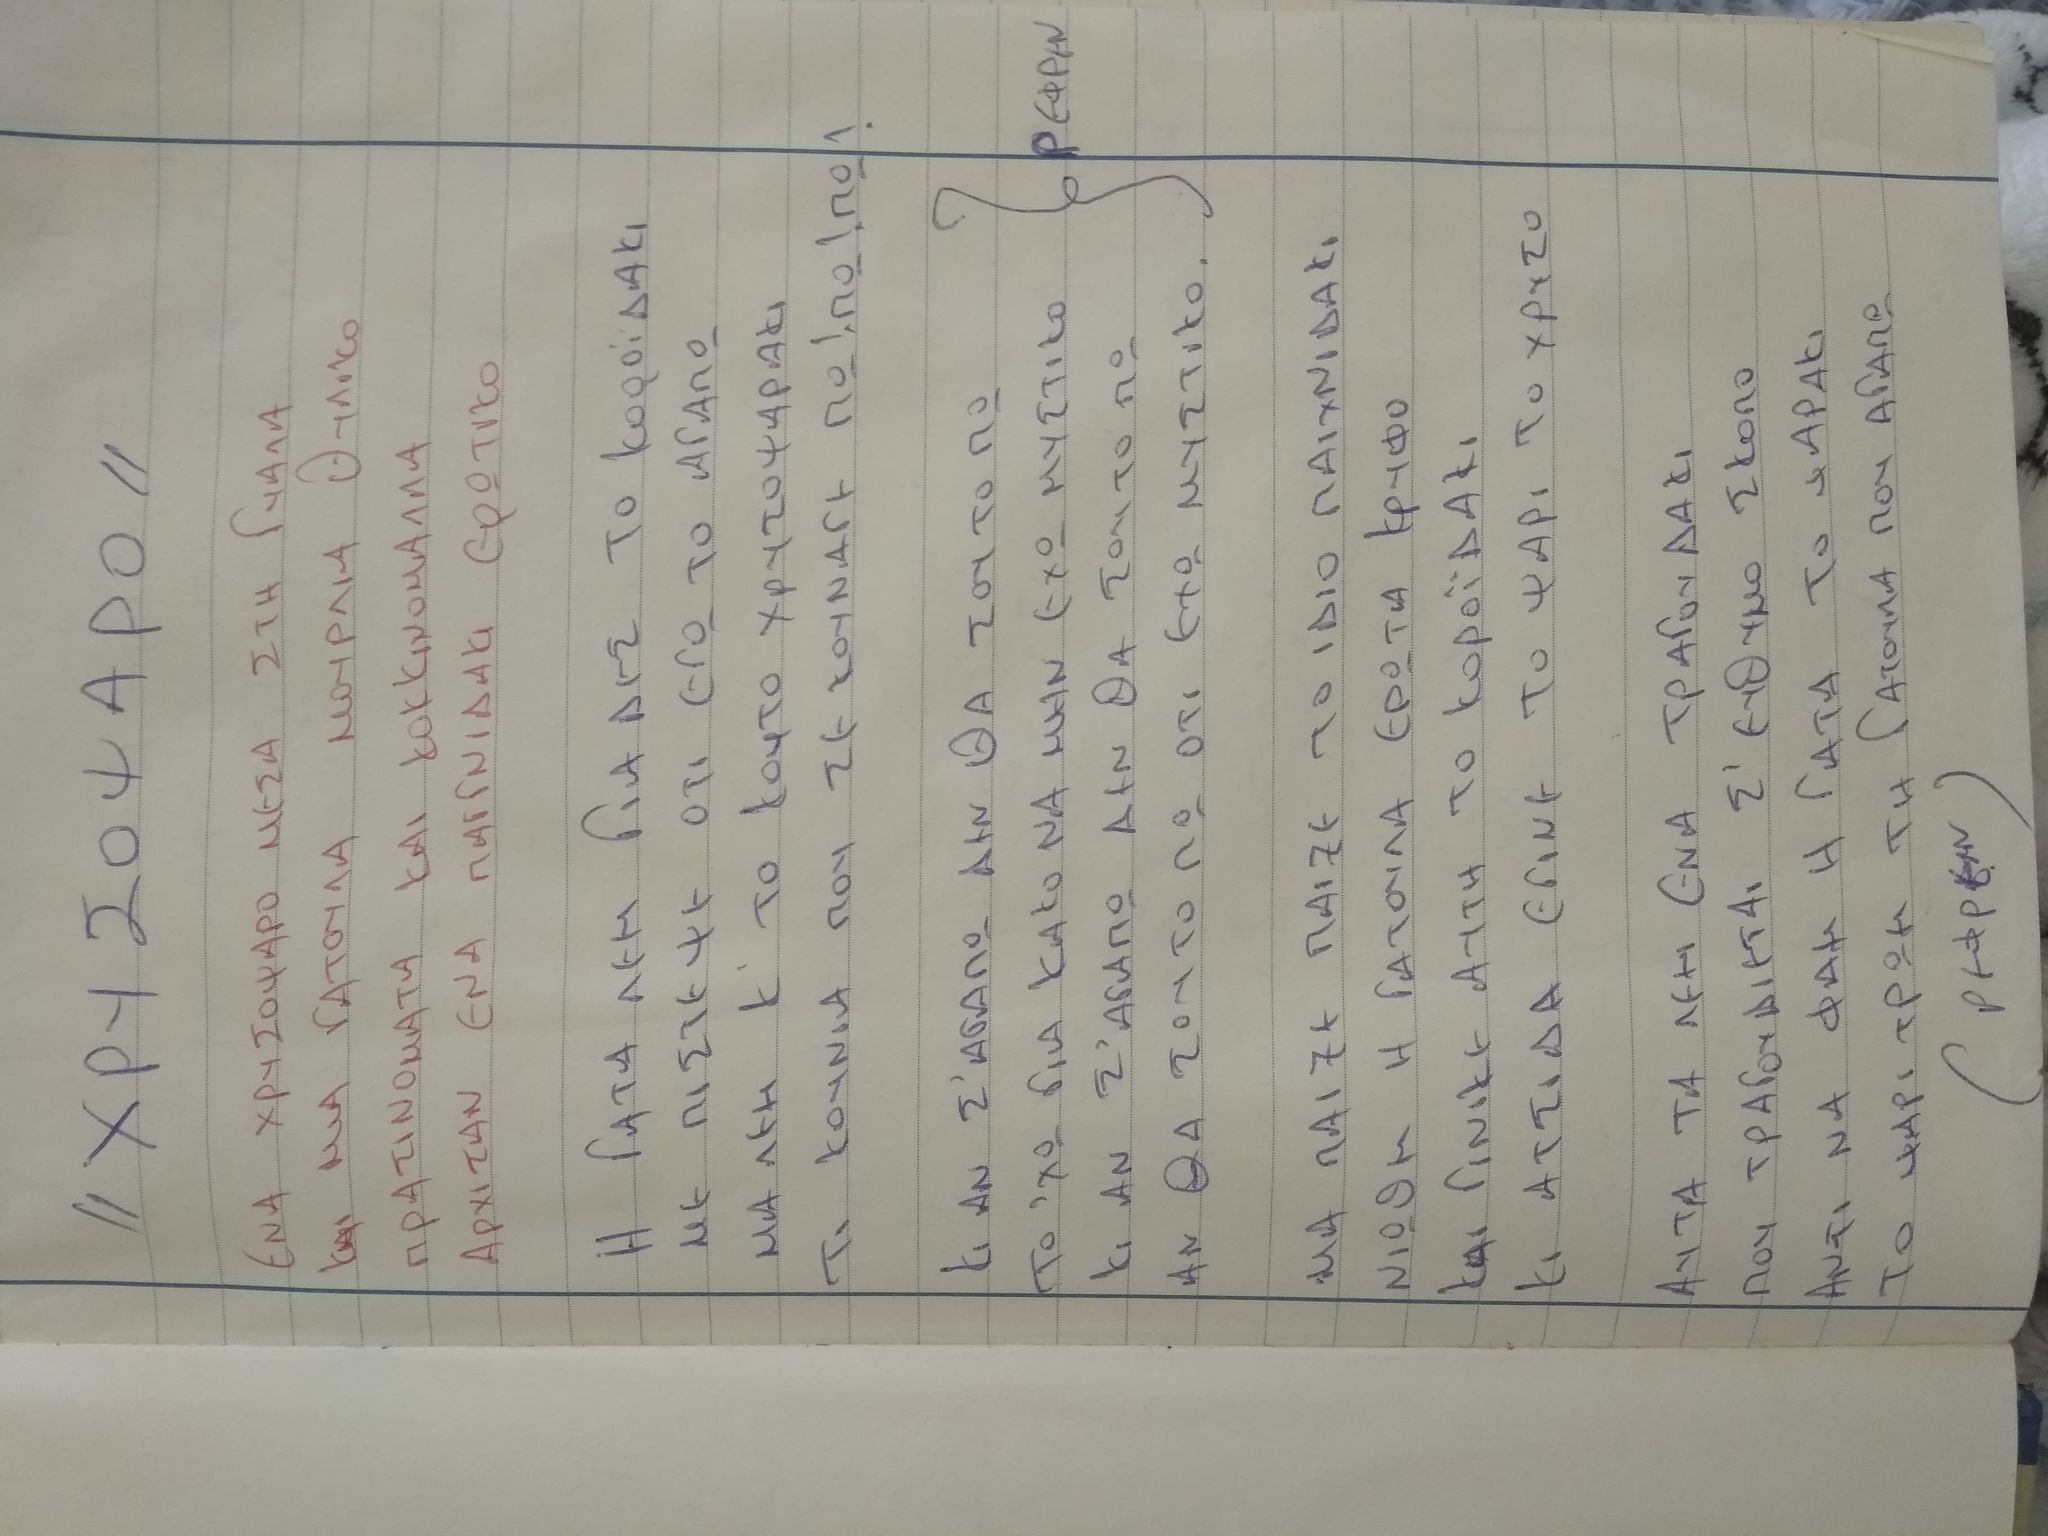 "ΧΡΥΣΟΨΑΡΟ"
ΕΝΑ ΧΡΥΣΟΨΑΡΟ ΜΕΣΑ ΣΤΗ ΓΥΑΛΑ
ΚΑΙ ΜΙΑ ΓΑΤΟΥΛΑ ΜΟΥΡΛΙΑ ΘΥΛΙΚΟ
ΠΡΑΣΙΝΟΜΑΤΑ ΚΑΙ ΚΟΚΚΙΝΟΜΑΛΛΑ
ΑΡΧΙΣΑΝ ΕΝΑ ΠΑΙΓΝΙΔΑΚΙ ΕΡΩΤΙΚΟ
Η ΓΑΤΑ ΛΕΗ ΓΙΑ ΔΕΣ ΤΟ ΚΟΡΟΪΔΑΚΙ
ΜΕ ΠΙΣΤΕΨΕ ΟΤΙ ΕΓΩ ΤΟ ΑΓΑΠΩ
ΜΑ ΛΕΗ Κ' ΤΟ ΚΟΥΤΟ ΧΡΥΣΟΨΑΡΑΚΙ
ΤΙ ΚΟΥΝΙΑ ΠΟΥ ΣΕ ΚΟΥΝΑΓΕ ΠΩ! ΠΩ! ΠΩ!
ΚΙ ΑΝ Σ'ΑΓΑΠΩ ΔΕΝ ΘΑ ΣΟΥ ΤΟ ΠΩ
ΤΟ'ΧΩ ΓΙΑ ΚΑΚΟ ΝΑ ΜΗΝ ΕΧΩ ΜΥΣΤΙΚΟ
ΡΕΦΡΗΝ
ΚΙ ΑΝ Σ'ΑΓΑΠΩ ΔΕΝ ΘΑ ΣΟΥ ΤΟ ΠΩ
ΑΝ ΘΑ ΣΟΥ ΤΟ ΠΩ ΟΤΙ ΕΧΩ ΜΥΣΤΙΚΟ.
ΜΑ ΠΑΙΖΕ ΠΑΙΖΕ ΤΟ ΙΔΙΟ ΠΑΙΧΝΙΔΑΚΙ
ΝΙΩΘΗ Η ΓΑΤΟΥΛΑ ΕΡΩΤΑ ΚΡΥΦΟ
ΚΑΙ ΓΙΝΙΚΕ ΑΥΤΗ ΤΟ ΚΟΡΟΪΔΑΚΙ
ΚΙ ΑΤΣΙΔΑ ΕΓΙΝΕ ΤΟ ΨΑΡΙ ΤΟ ΧΡΥΣΟ
ΑΥΤΑ ΤΑ ΛΕΗ ΕΝΑ ΤΡΑΓΟΥΔΑΚΙ
ΠΟΥ ΤΡΑΓΟΥΔΙΕΤΑΙ Σ' ΕΥΘΥΜΟ ΣΚΟΠΟ
ΑΝΤΙ ΝΑ ΦΑΗ Η ΓΑΤΑ ΤΟ ΨΑΡΑΚΙ
ΤΟ ΨΑΡΙ ΤΡΩΗ ΤΗ ΓΑΤΟΥΛΑ ΠΟΥ ΑΓΑΠΩ
(ΡΕΦΡΕΗΝ)